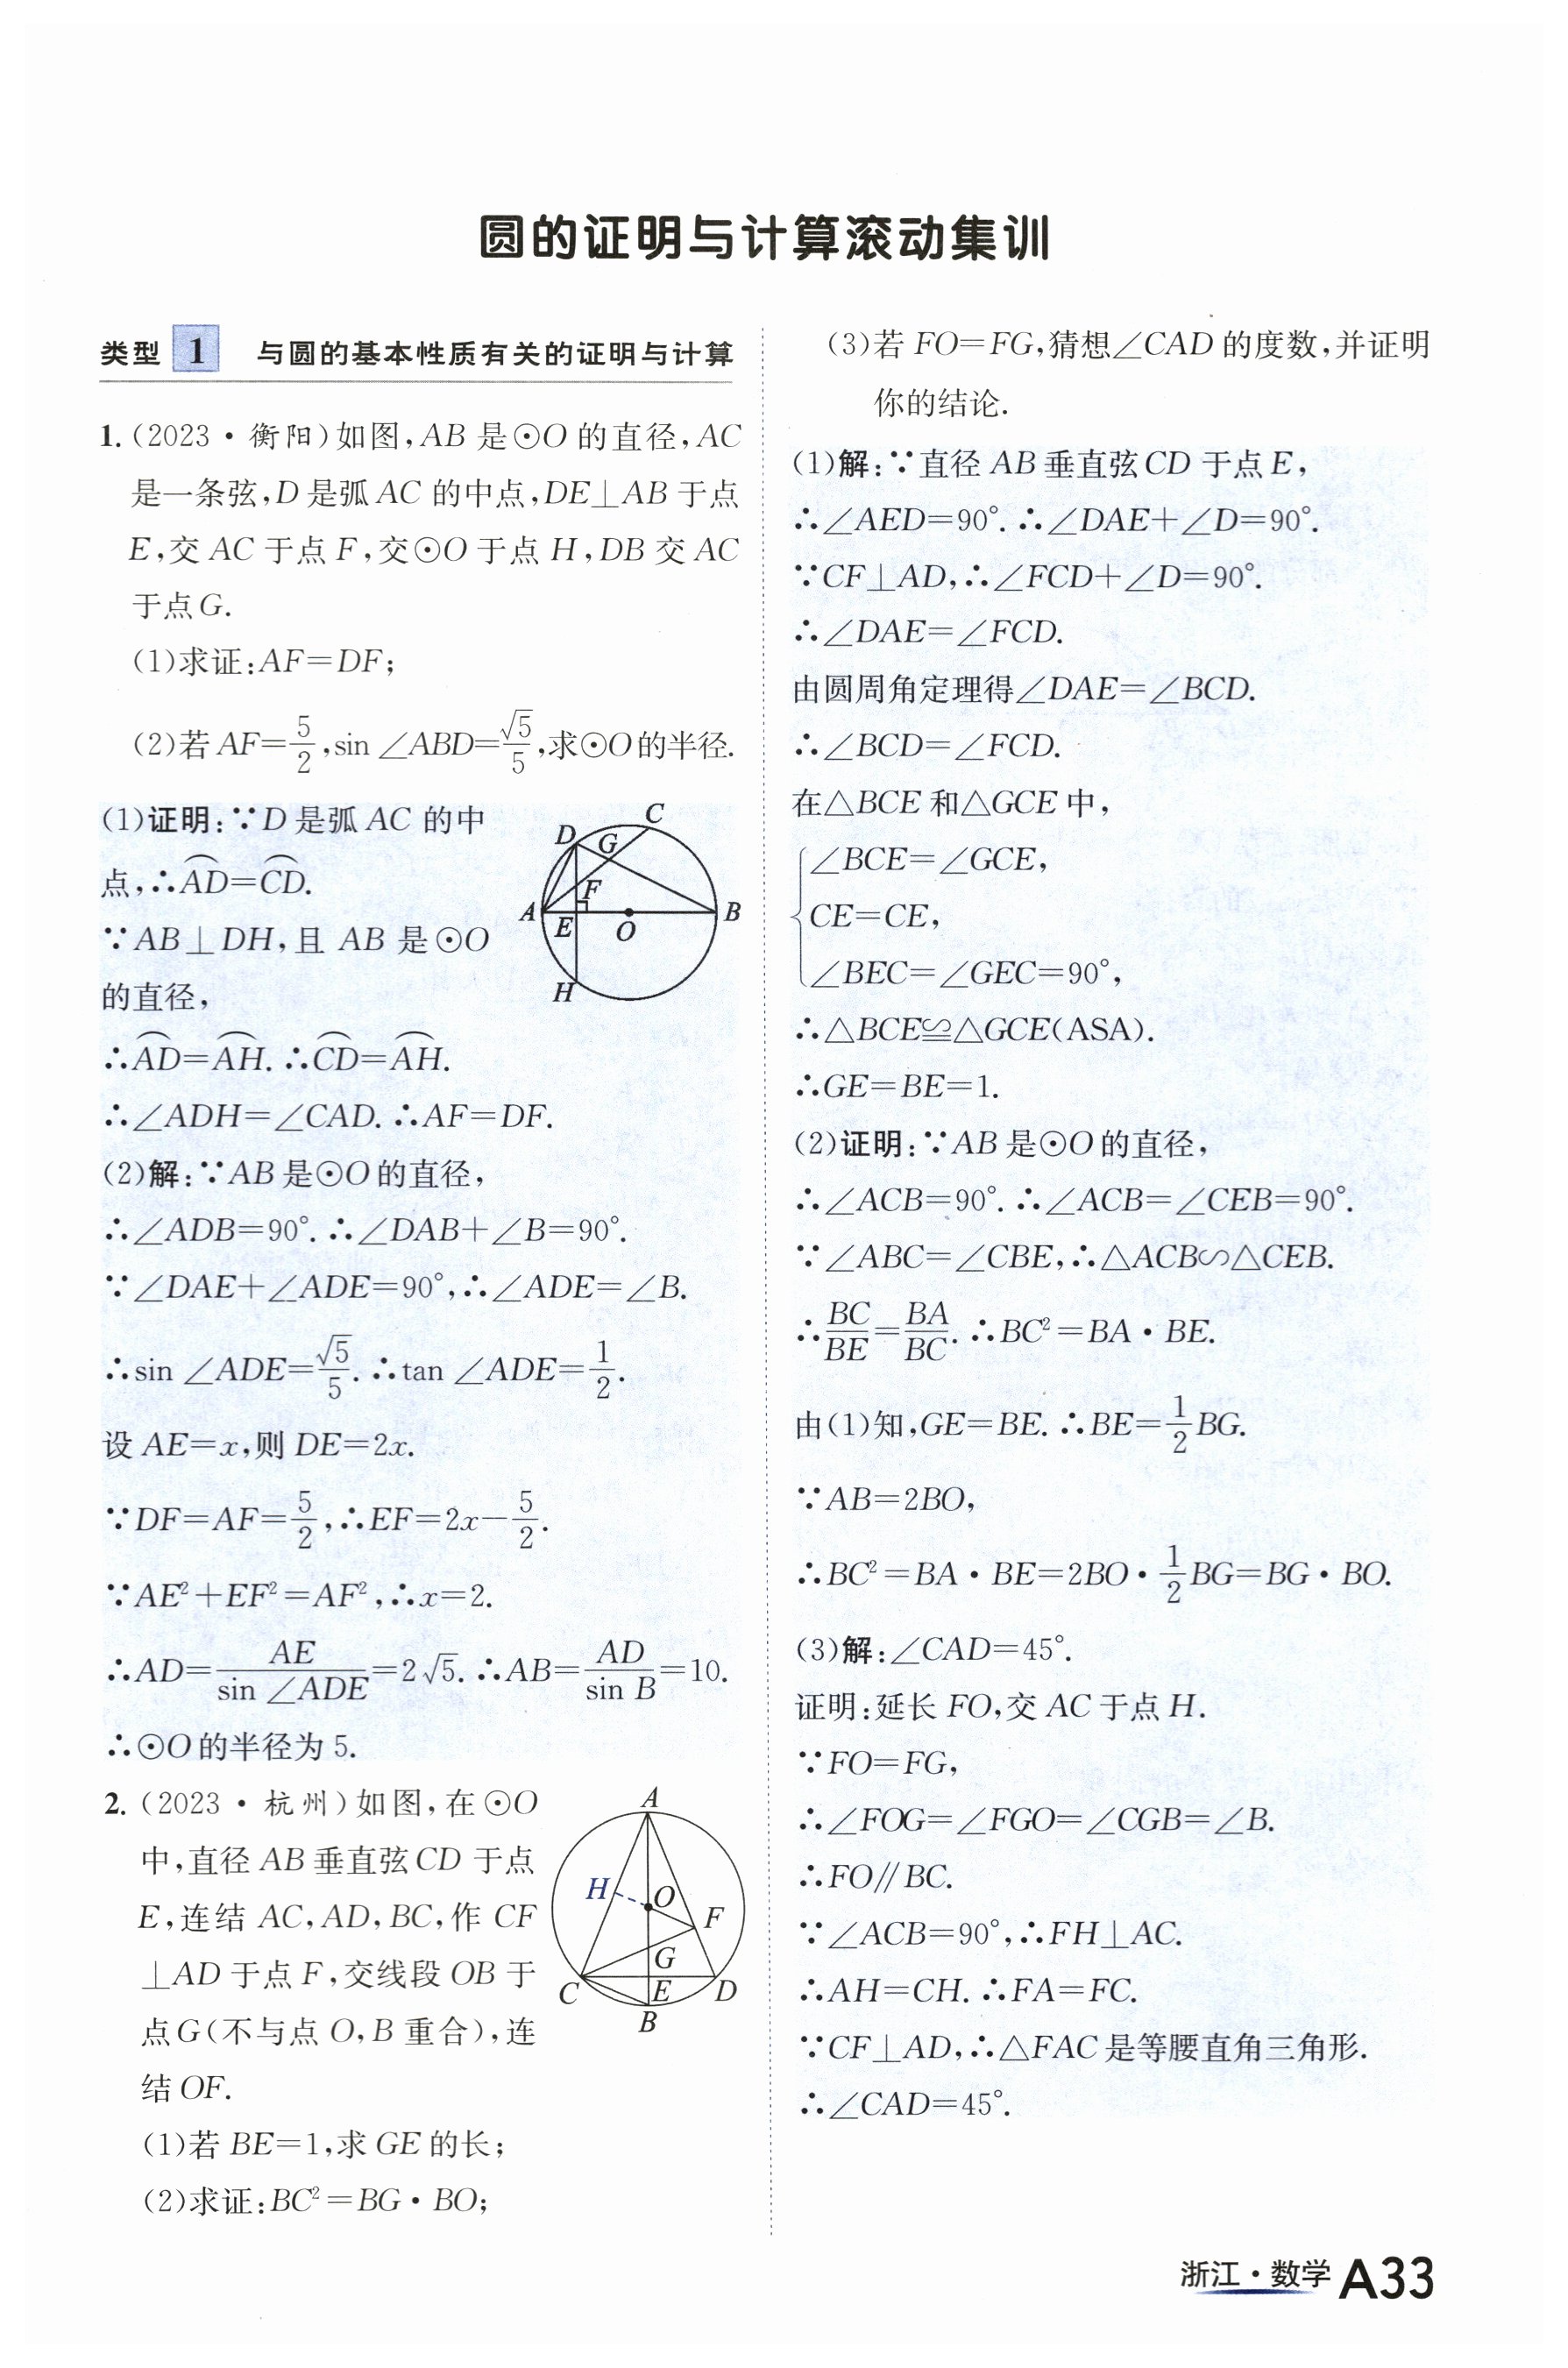 圆的证明与计算滚动集训
类型 1 与圆的基本性质有关的证明与计算
1.(2023·衡阳)如图,AB 是⊙O 的直径,AC
是一条弦,D 是弧 AC 的中点,DE⊥AB 于点
E,交 AC 于点 F,交⊙O 于点 H,DB 交 AC
于点 G.
(1)求证:AF=DF;
(2)若 AF=5/2,sin ∠ABD=√5/5,求⊙O 的半径.
(1)证明:∵D 是弧 AC 的中
点,∴A͡D=C͡D.
∵AB⊥DH,且 AB 是⊙O
的直径,
∴A͡D=A͡H.∴C͡D=A͡H.
∴∠ADH=∠CAD.∴AF=DF.
(2)解:∵AB 是⊙O 的直径,
∴∠ADB=90°.∴∠DAB+∠B=90°.
∵∠DAE+∠ADE=90°,∴∠ADE=∠B.
∴sin ∠ADE=√5/5.∴tan ∠ADE=1/2.
设 AE=x,则 DE=2x.
∵DF=AF=5/2,∴EF=2x-5/2.
∵AE²+EF²=AF²,∴x=2.
∴AD=AE/sin ∠ADE=2√5.∴AB=AD/sin B=10.
∴⊙O 的半径为 5.
C
D
G
F
A
E
O
B
H
2.(2023·杭州)如图,在⊙O
中,直径 AB 垂直弦 CD 于点
E,连结 AC,AD,BC,作 CF
⊥AD 于点 F,交线段 OB 于
点 G(不与点 O,B 重合),连
结 OF.
(1)若 BE=1,求 GE 的长;
(2)求证:BC²=BG·BO;
A
H
O
F
G
C
E
D
B
(3)若 FO=FG,猜想∠CAD 的度数,并证明
你的结论.
(1)解:∵直径 AB 垂直弦 CD 于点 E,
∴∠AED=90°.∴∠DAE+∠D=90°.
∵CF⊥AD,∴∠FCD+∠D=90°.
∴∠DAE=∠FCD.
由圆周角定理得∠DAE=∠BCD.
∴∠BCD=∠FCD.
在△BCE 和△GCE 中,
∠BCE=∠GCE,
CE=CE,
∠BEC=∠GEC=90°,
∴△BCE≌△GCE(ASA).
∴GE=BE=1.
(2)证明:∵AB 是⊙O 的直径,
∴∠ACB=90°.∴∠ACB=∠CEB=90°.
∵∠ABC=∠CBE,∴△ACB∽△CEB.
∴BC/BE=BA/BC.∴BC²=BA·BE.
由(1)知,GE=BE.∴BE=1/2BG.
∵AB=2BO,
∴BC²=BA·BE=2BO·1/2BG=BG·BO.
(3)解:∠CAD=45°.
证明:延长 FO,交 AC 于点 H.
∵FO=FG,
∴∠FOG=∠FGO=∠CGB=∠B.
∴FO∥BC.
∵∠ACB=90°,∴FH⊥AC.
∴AH=CH.∴FA=FC.
∵CF⊥AD,∴△FAC 是等腰直角三角形.
∴∠CAD=45°.
浙江·数学 A33